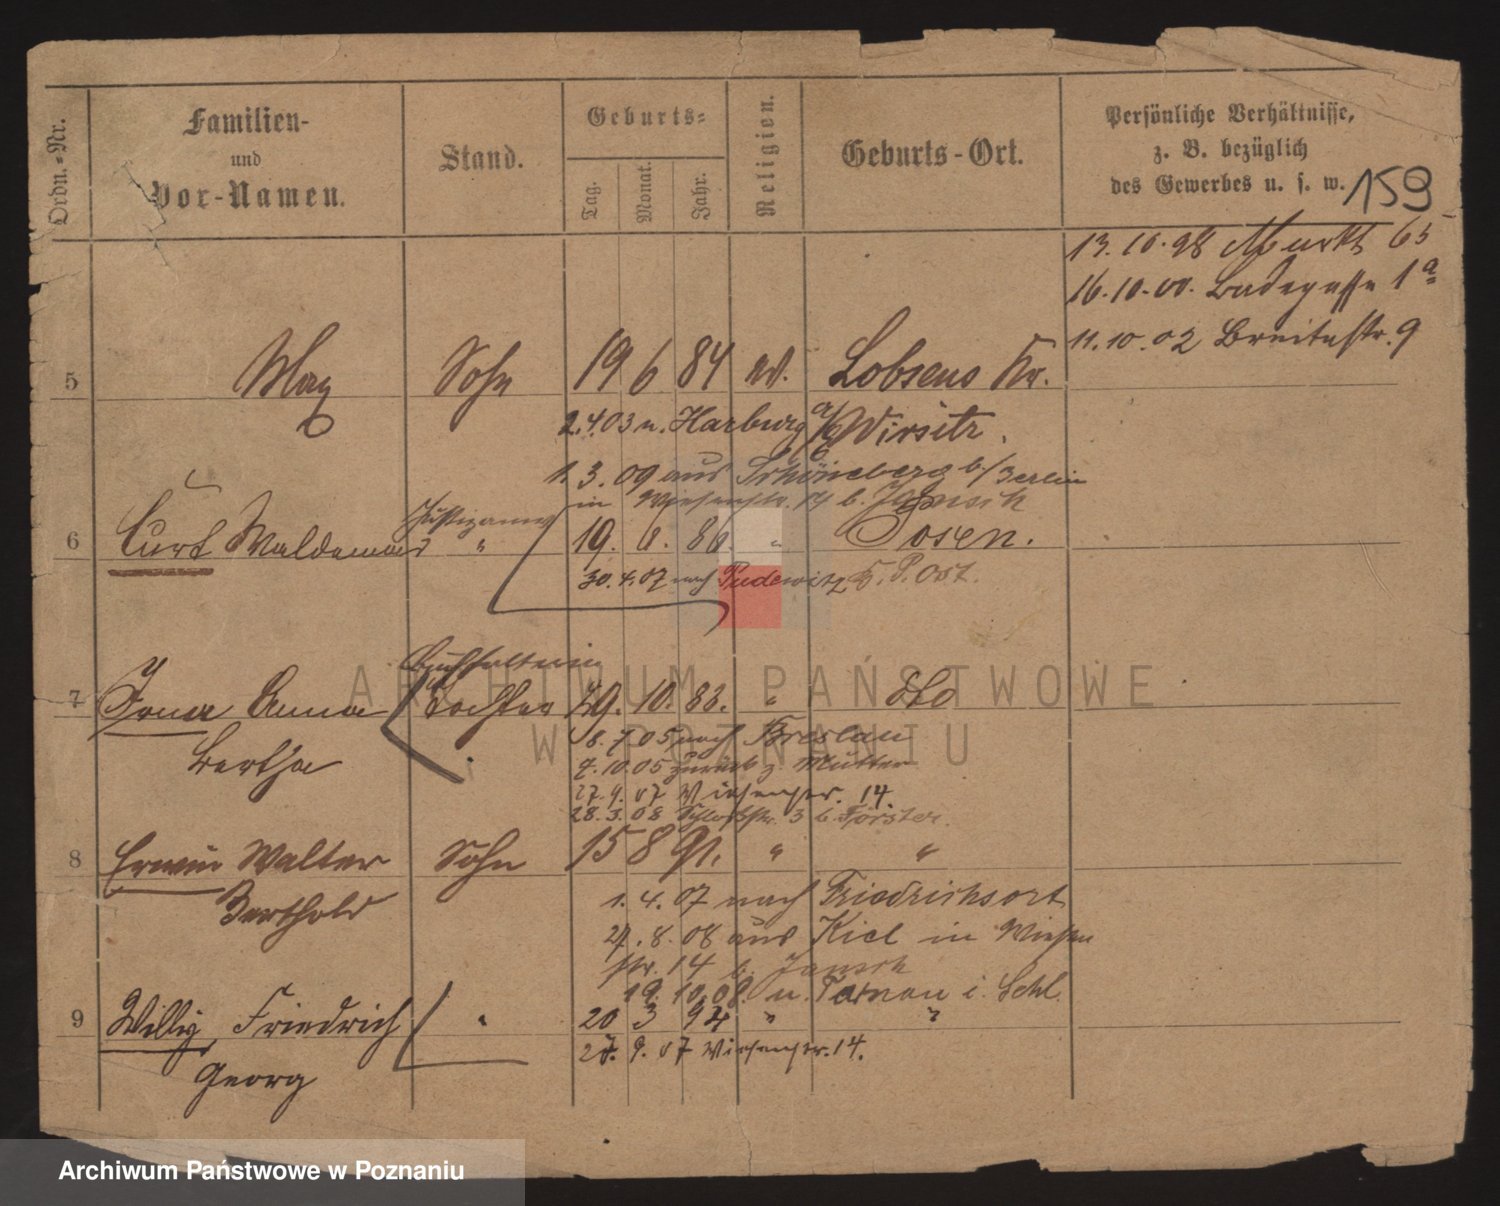 Ordn.-Nr.
Familien-
und
Vor-Namen.
Stand.
Geburts-
Tag.
Monat.
Jahr.
Religion.
Geburts-Ort.
Persönliche Verhältnisse,
z. B. bezüglich
des Gewerbes u. s. w.
159
13.10.98 Markt 65
16.10.00. Badegasse 1a
11.10.02 Breitestr. 9
5 Max Sohn 19 6 84 ev. Lobsens Kr.
2.4.03 n. Harburg a/E Wirsitz.
1.3.09 aus Schöneberg b/Berlin
in Wiesenstr. 14 b.
6 Curt Waldemar " 19. 6. 86. " Posen.
30.4.07 nach Pudewitz Kr. P. Ost.
Buchhalterin
7 Irma Anna Tochter 29. 10. 88. " dto
Bertha
8.7.05 nach Breslau
7.10.05 zurück z. Mutter
27.9.07 Wiesenstr. 14.
28.3.08 Schloßstr. 3 b. Förster.
8 Erwin Walter Sohn 15 8 91. " "
Berthold
1.4.07 nach Friedrichsort
24.8.08 aus Kiel in Wiesen
str. 14 b.
19.10.08. n. Tarnau i. Schl.
9 Willy, Friedrich " 20 3 94 " "
Georg
27.9.07 Wiesenstr. 14.
ARCHIWUM PAŃSTWOWE
W POZNANIU
Archiwum Państwowe w Poznaniu